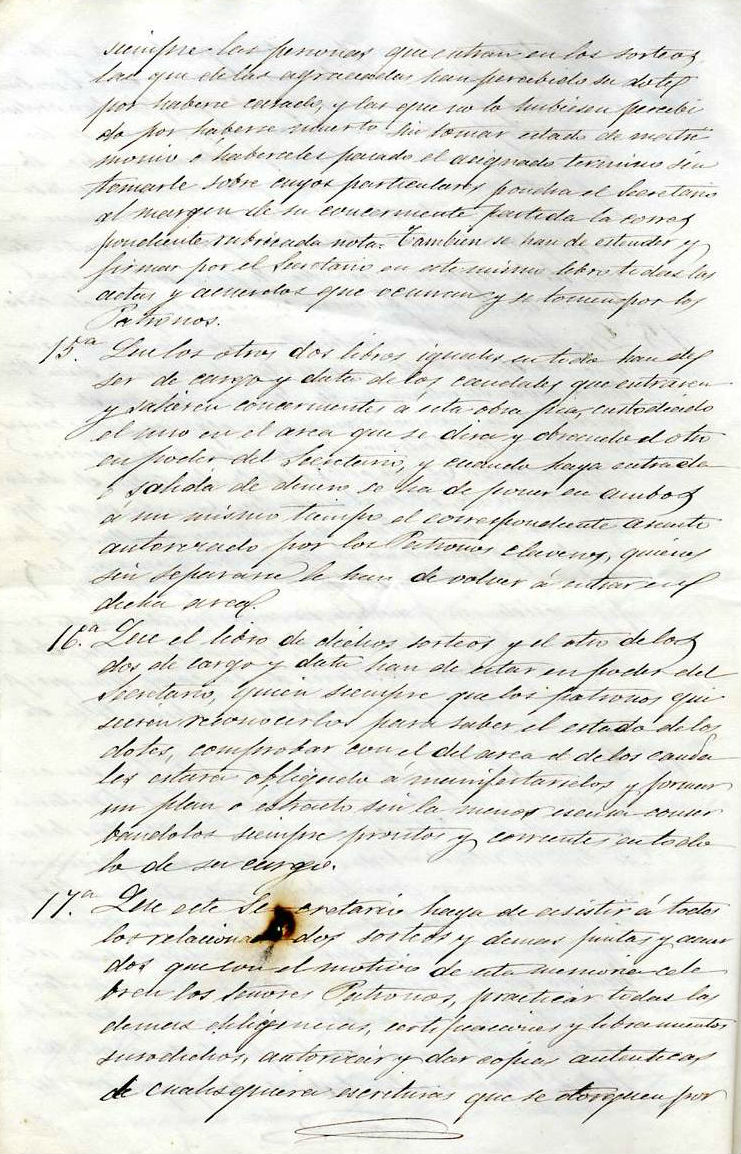 siempre las personas que entran en los sorteos,
las que de las agraciadas han percibido su dote
por haberse casado, y las que no lo hubiesen percibi
do por haberse muerto sin tomar estado de matri
monio o haberseles pasado el asignado termino sin
tomarle sobre cuyos particulares pondra el Secretario
al margen de su concerniente partida la corres
pondiente rubricada nota. Tambien se han de estender y
firmar por el Secretario en este mismo libro todas las
actas y acuerdos que ocurran y se tomen por los
Patronos.
15.ª Que los otros dos libros iguales en todo han de
ser de cargo y data de los caudales que entraren
y salieren concernientes a esta obra pia, custodiado
el uno en el arca que se dira y obrando el otro
en poder del Secretario, y cuando haya entrada
o salida de dinero se ha de poner en ambos
á un mismo tiempo el correspondiente asiento
autorizado por los Patronos claveros, quienes
sin separarse le han de volver á entrar en
dicha arca.
16.ª Que el libro de dichos sorteos y el otro de los
dos de cargo y data han de estar en poder del
Secretario, quien siempre que los patronos qui
sieren reconocerlos para saber el estado de los
dotes, comprobar con el del arca el de los cauda
les estará obligado á manifestarselos y formar
un plan o estracto sin la menor escusa conser
bandolos siempre prontos y corrientes en todo
lo de su cargo.
17.ª Que este Secretario haya de asistir á todos
los relacionados sorteos y demas juntas y acuer
dos que con el motivo de esta memoria cele
bren los Señores Patronos, practicar todas las
demas diligencias, certificaciones y libramientos
susodichos, autorizar y dar copias autenticas
de cualesquiera escrituras que se otorguen por